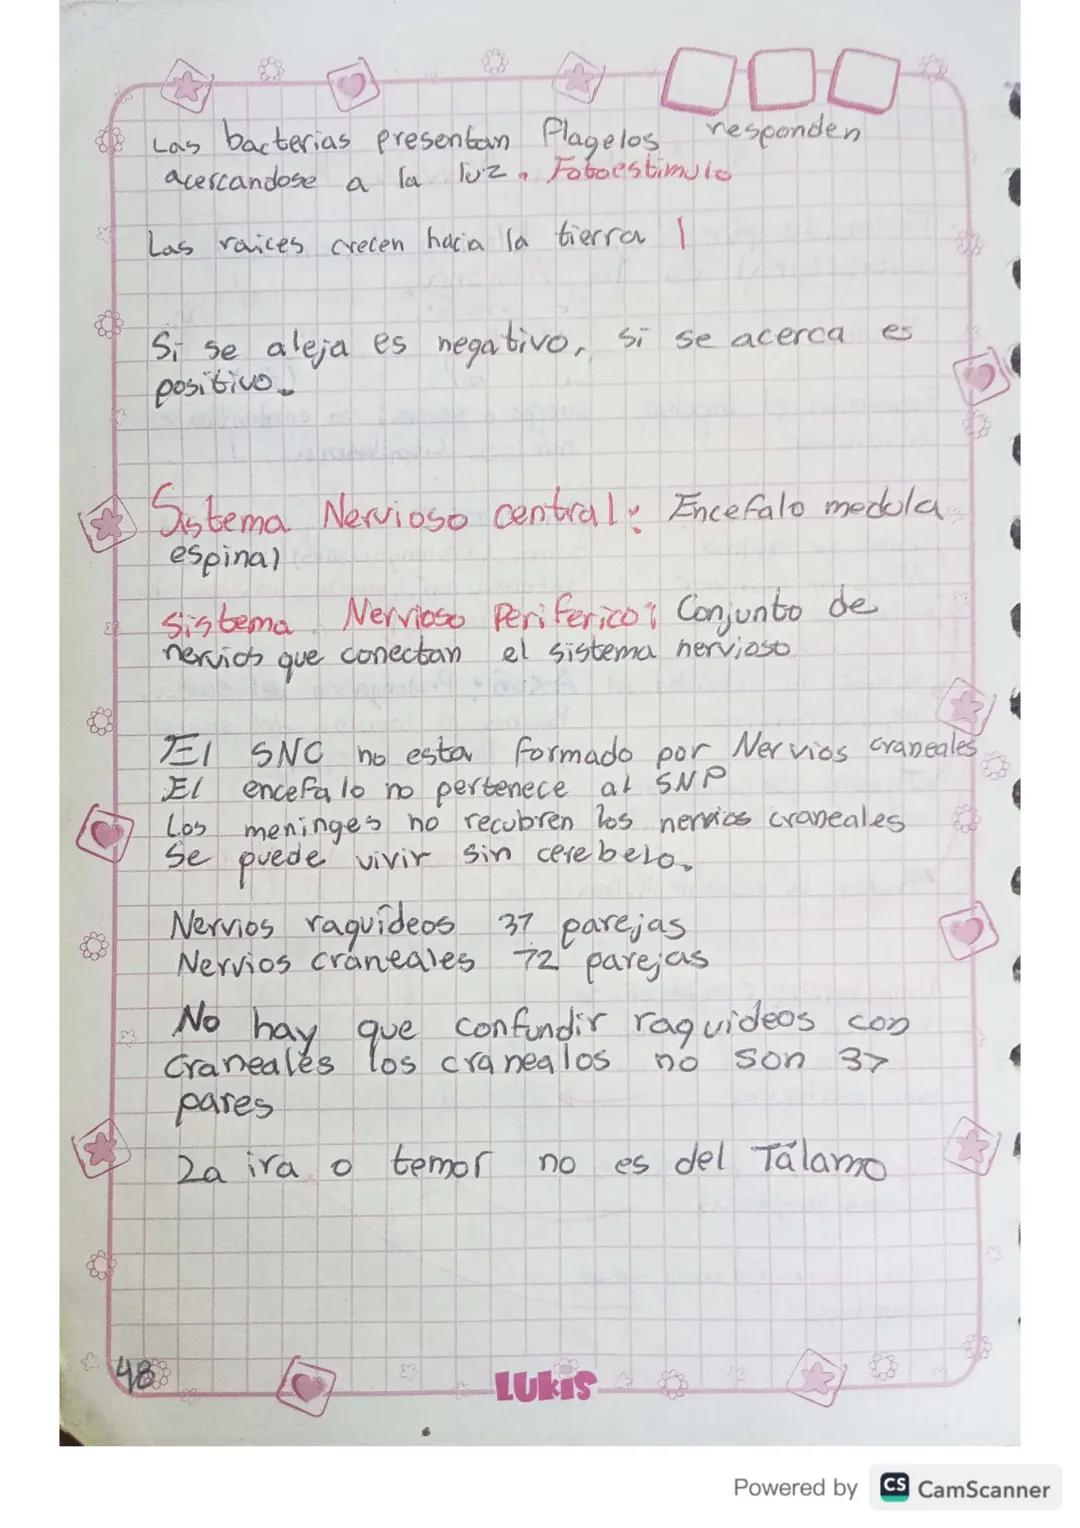 Las bacterias presentan Plagelos responden
acercandose a la luz. Fotoestimulo
Las raices crecen hacia la tierra |
Si se aleja es negativo, si se acerca es
positivo.
Sistema Nervioso central: Encefalo medula
espinal
Sistema Nervioso Periferico: Conjunto de
nervios que conectan el sistema nervioso
El SNC no esta formado por Nervios craneales
El encefalo no pertenece al SNP
Los meninges no recubren los nervios craneales
Se puede vivir sin cerebelo.
Nervios raquídeos 31 parejas
Nervios craneales 12 parejas
No hay que confundir raquideos con
Craneales los cranealos no son 31
pares
La ira o temor no es del Tálamo
48
LUKIS
Powered by CS CamScanner